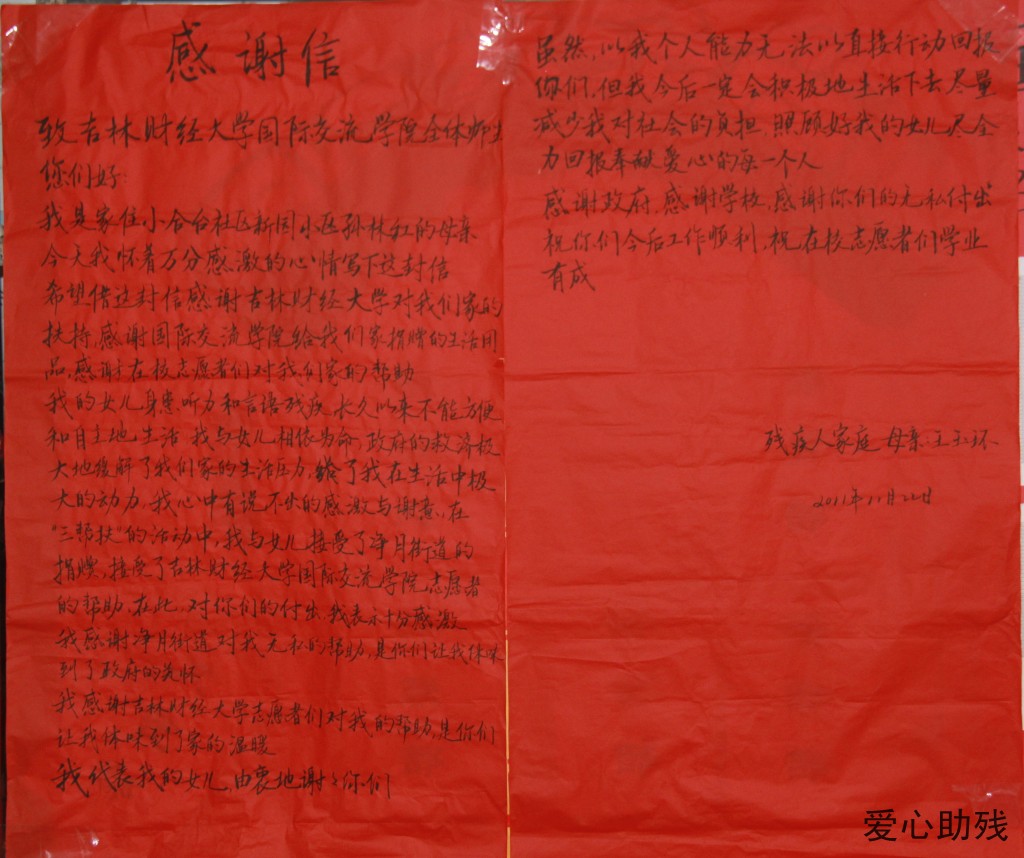 感谢信
致吉林财经大学国际交流学院全体师生
您们好:
我是家住小合台社区新园小区孙林红的母亲
今天我怀着万分感激的心情写下这封信
希望借这封信感谢吉林财经大学对我们家的
扶持,感谢国际交流学院给我们家捐赠的生活用
品,感谢在校志愿者们对我们家的帮助
我的女儿身患听力和言语残疾,长久以来不能方便
和自主地生活 我与女儿相依为命,政府的救济极
大地缓解了我们家的生活压力,给了我在生活中极
大的动力,我心中有说不出的感激与谢意,在
"三帮扶"的活动中,我与女儿接受了净月街道的
捐赠,接受了吉林财经大学国际交流学院志愿者
的帮助,在此,对你们的付出,我表示十分感激
我感谢净月街道对我无私的帮助,是你们让我体味
到了政府的关怀
我感谢吉林财经大学志愿者们对我的帮助,是你们
让我体味到了家的温暖
我代表我的女儿,由衷地谢谢你们
虽然,以我个人能力无法以直接行动回报
你们,但我今后一定会积极地生活下去 尽量
减少我对社会的负担,照顾好我的女儿 尽全
力回报奉献爱心的每一个人
感谢政府,感谢学校,感谢你们的无私付出
祝你们今后工作顺利,祝在校志愿者们学业
有成
残疾人家庭 母亲:王玉环
2011年11月22日
爱心助残